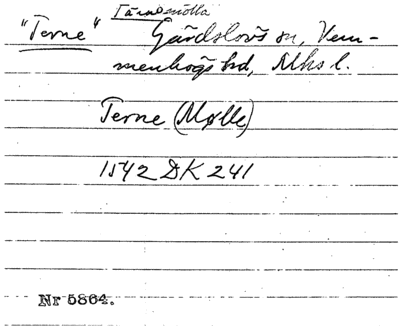 Tärnemölla
"Terne" Gärdslövs sn, Vem-
menhögs hd, Mhs l.
Terne (Mølle)
1542 DK 241
Nr 5864.